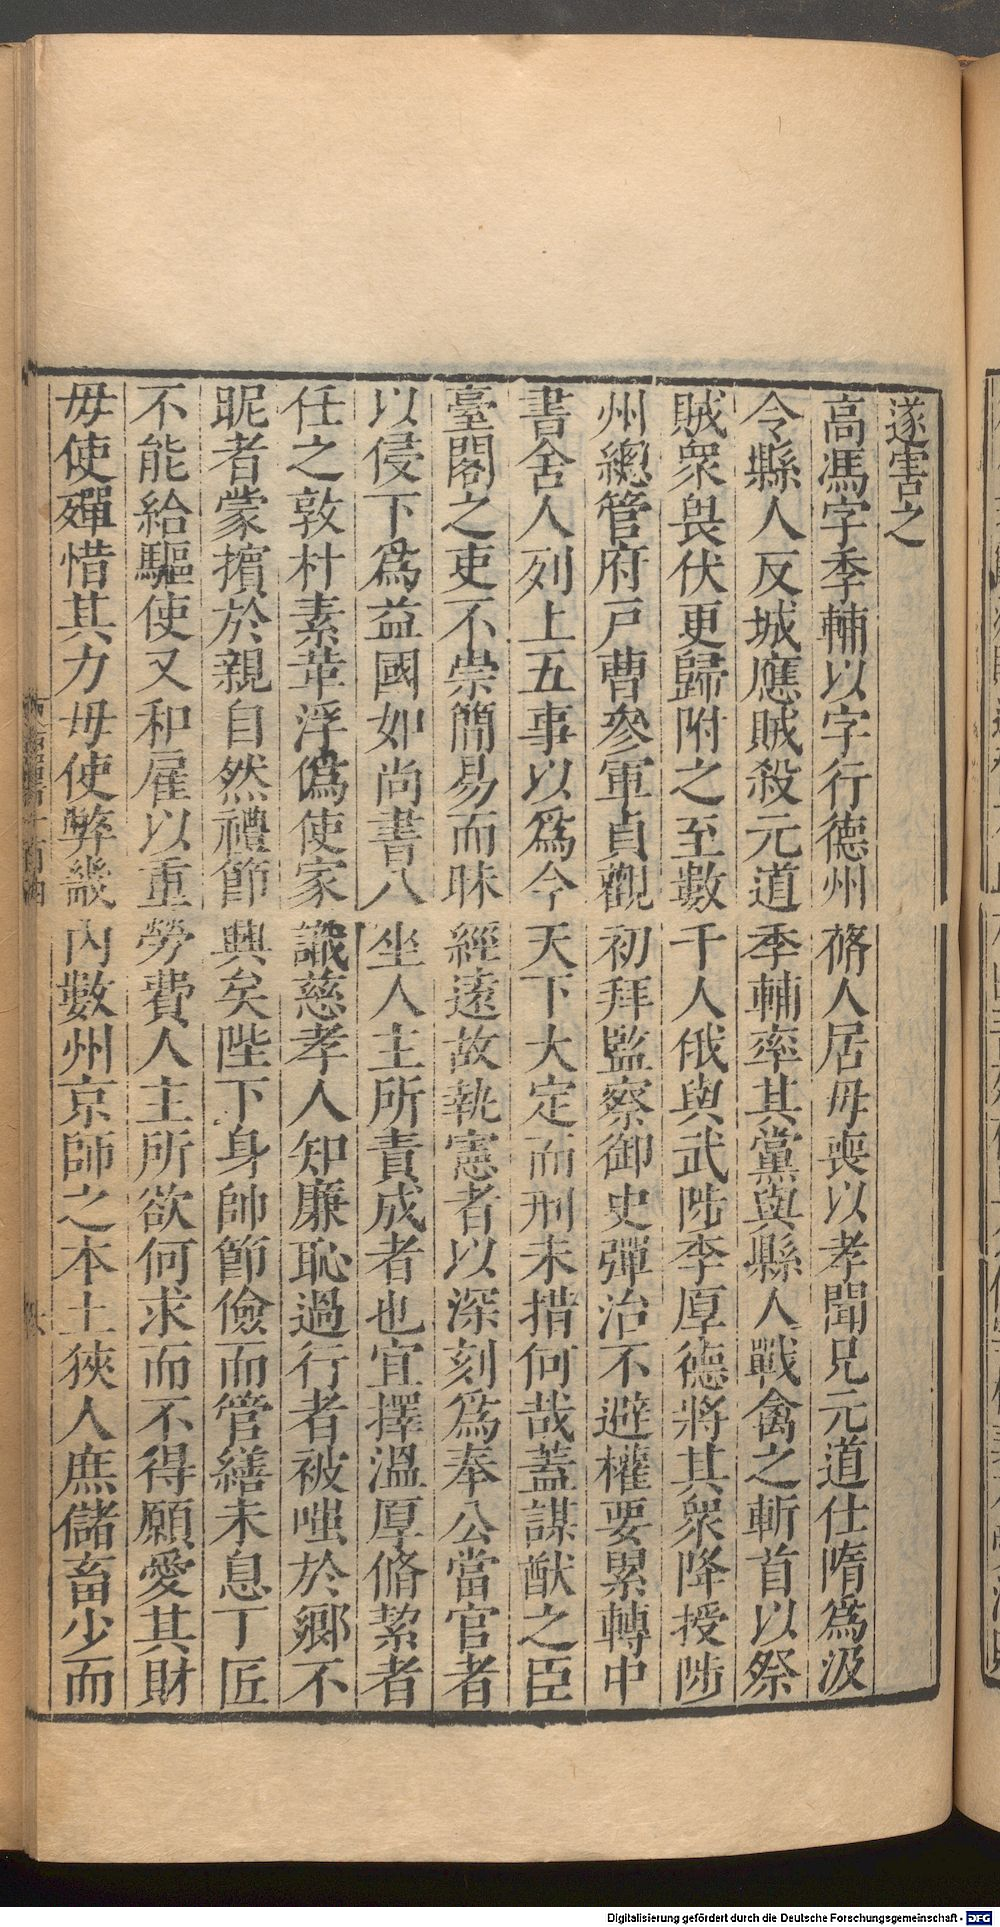 遂害之
高馮字季輔以字行德州蓨人居毋喪以孝聞兄元道仕隋爲汲
令縣人反城應賊殺元道季輔率其黨與縣人戰禽之斬首以祭
賊衆畏伏更歸附之至數千人俄與武陟李厚德將其衆降授陟
州總管府戸曹參軍貞觀初拜監察御史彈治不避權要累轉中
書舍人列上五事以爲今天下大定而刑未措何哉蓋謀猷之臣
臺閣之吏不崇簡易而昧經遠故執憲者以深刻爲奉公當官者
以侵下爲益國如尚書八坐人主所責成者也宜擇溫厚脩絜者
任之敦朴素革浮僞使家識慈孝人知廉恥過行者被嗤於鄉不
昵者蒙擯於親自然禮節興矣陛下身帥節儉而管繕未息丁匠
不能給驅使又和雇以重勞費人主所欲何求而不得願愛其財
毋使殫惜其力毋使弊畿內數州京師之本土狹人庶儲畜少而
Digitalisierung gefördert durch die Deutsche Forschungsgemeinschaft - DFG